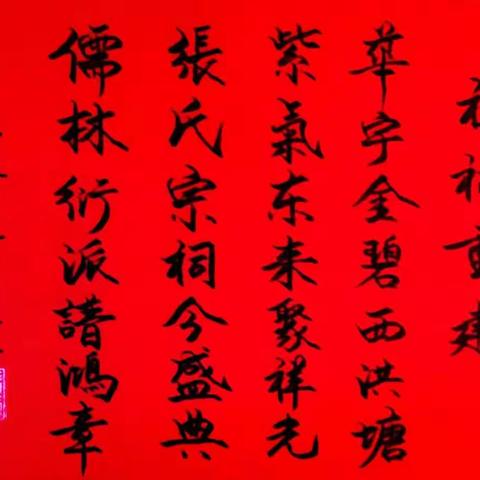 重建
華宇金碧西洪塘
紫氣东来聚祥光
張氏宗祠今盛典
儒林衍派譜鴻章